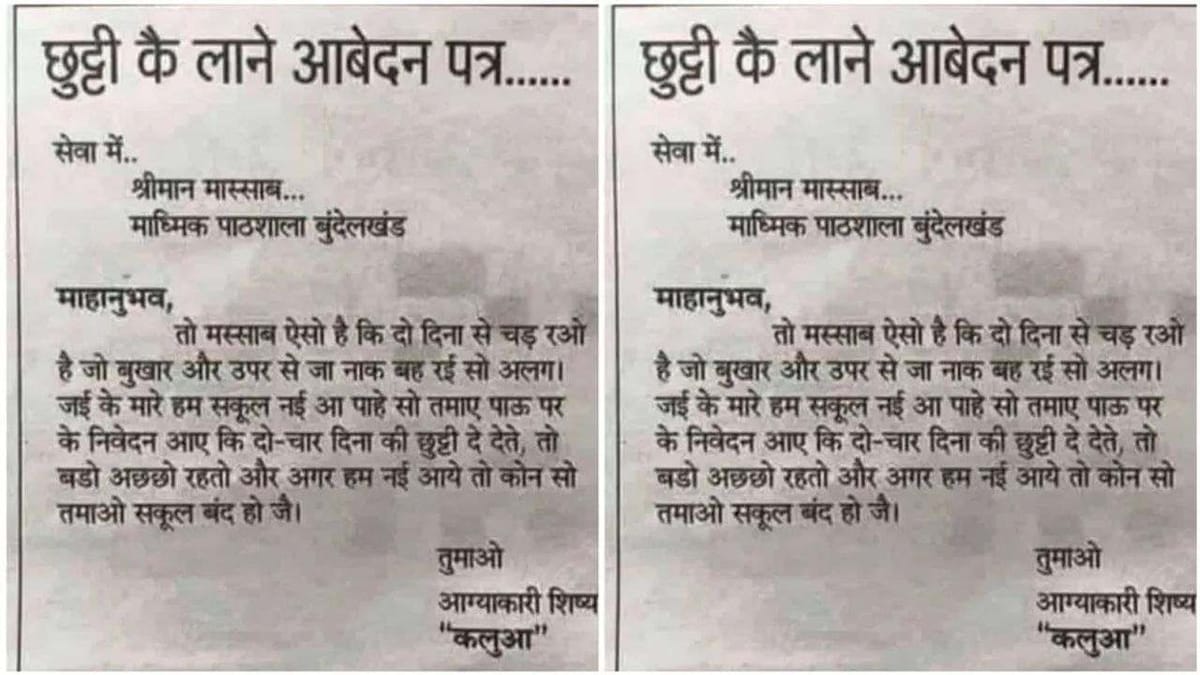 छुट्टी कै लाने आबेदन पत्र......
सेवा में..
श्रीमान मास्साब...
माध्मिक पाठशाला बुंदेलखंड
माहानुंभव,
तो मस्साब ऐसो है कि दो दिना से चड़ रओ
है जो बुखार और उपर से जा नाक बह रई सो अलग।
जई के मारे हम सकूल नई आ पाहे सो तमाए पाऊ पर
के निवेदन आए कि दो-चार दिना की छुट्टी दे देते, तो
बडो अछछो रहतो और अगर हम नई आये तो कोन सो
तमाओ सकूल बंद हो जै।
तुमाओ
आग्याकारी शिष्य
“कलुआ”
छुट्टी कै लाने आबेदन पत्र......
सेवा में..
श्रीमान मास्साब...
माध्मिक पाठशाला बुंदेलखंड
माहानुंभव,
तो मस्साब ऐसो है कि दो दिना से चड़ रओ
है जो बुखार और उपर से जा नाक बह रई सो अलग।
जई के मारे हम सकूल नई आ पाहे सो तमाए पाऊ पर
के निवेदन आए कि दो-चार दिना की छुट्टी दे देते, तो
बडो अछछो रहतो और अगर हम नई आये तो कोन सो
तमाओ सकूल बंद हो जै।
तुमाओ
आग्याकारी शिष्य
“कलुआ”